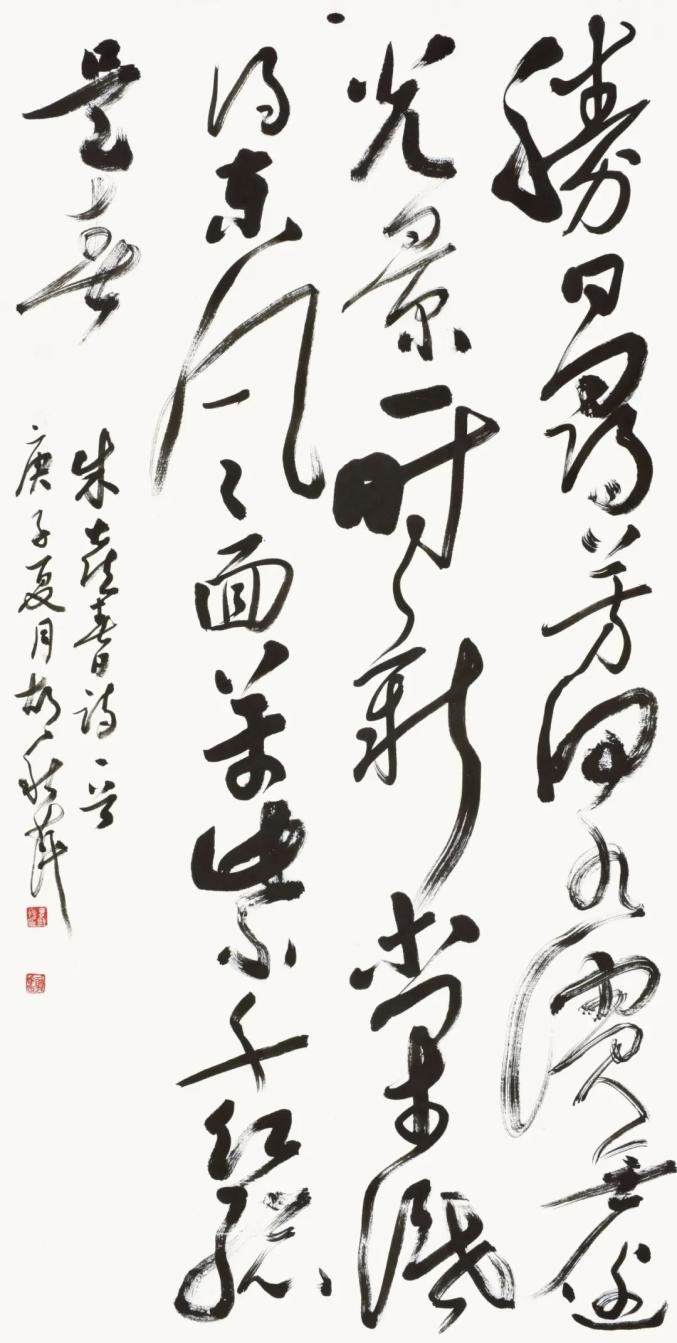 勝日尋芳泗水濱無邊
光景一時新等閒識
得東風面萬紫千紅總
是春
朱熹春日詩一首
庚子夏月胡秋萍